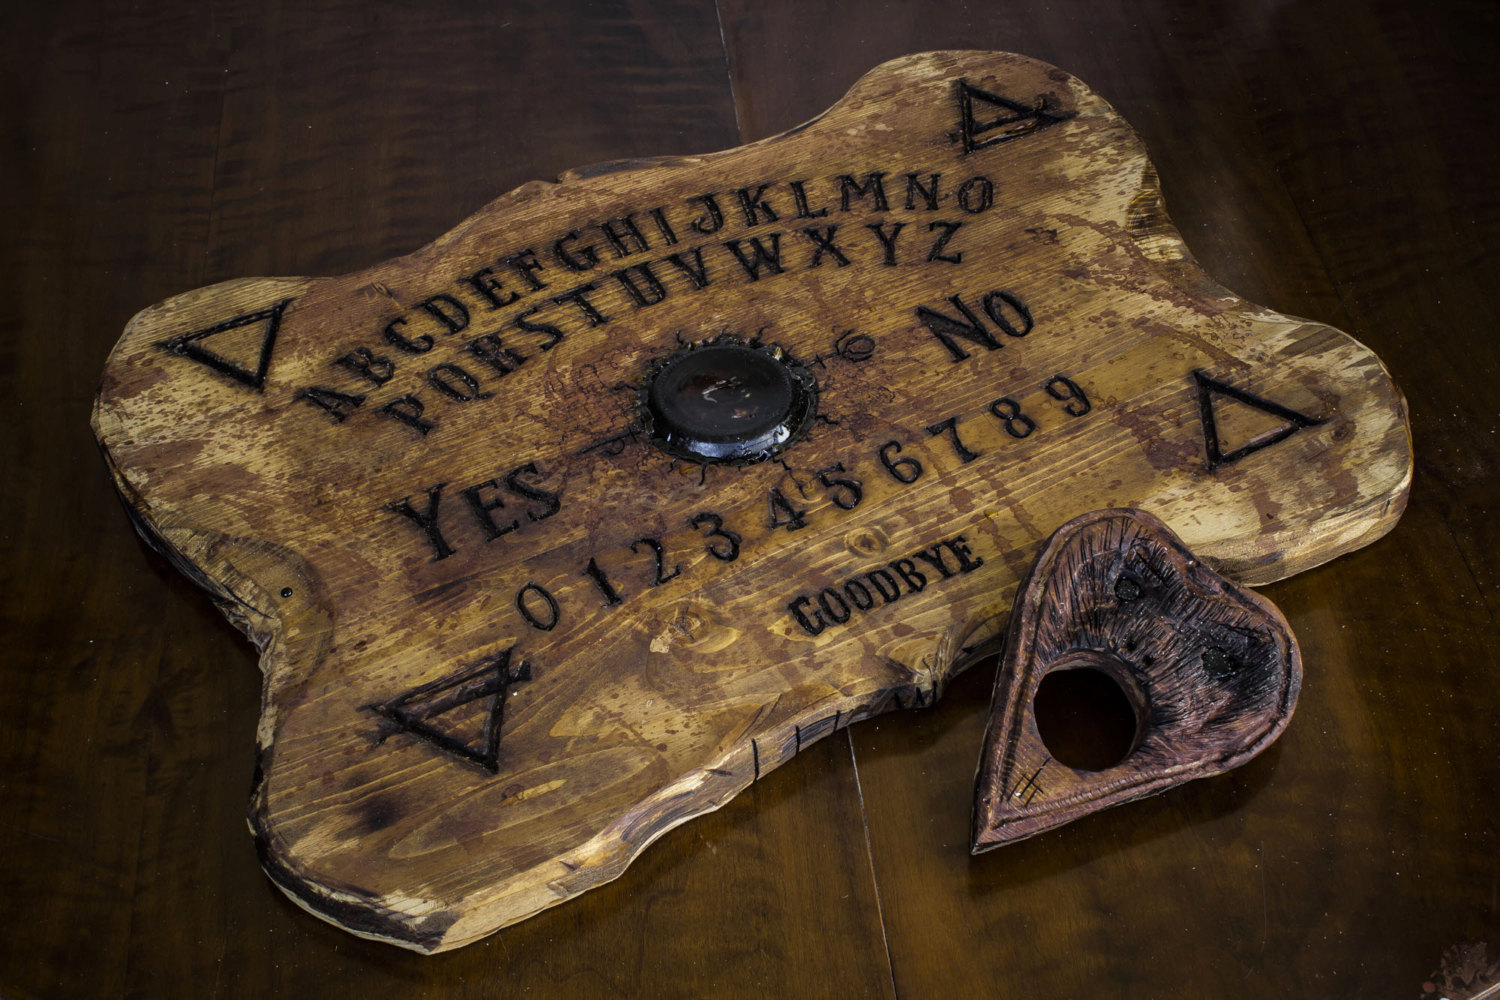 ABCDEFGHIJKLMNO
PQRSTUVWXYZ
YES NO
0123456789
GOODBYE